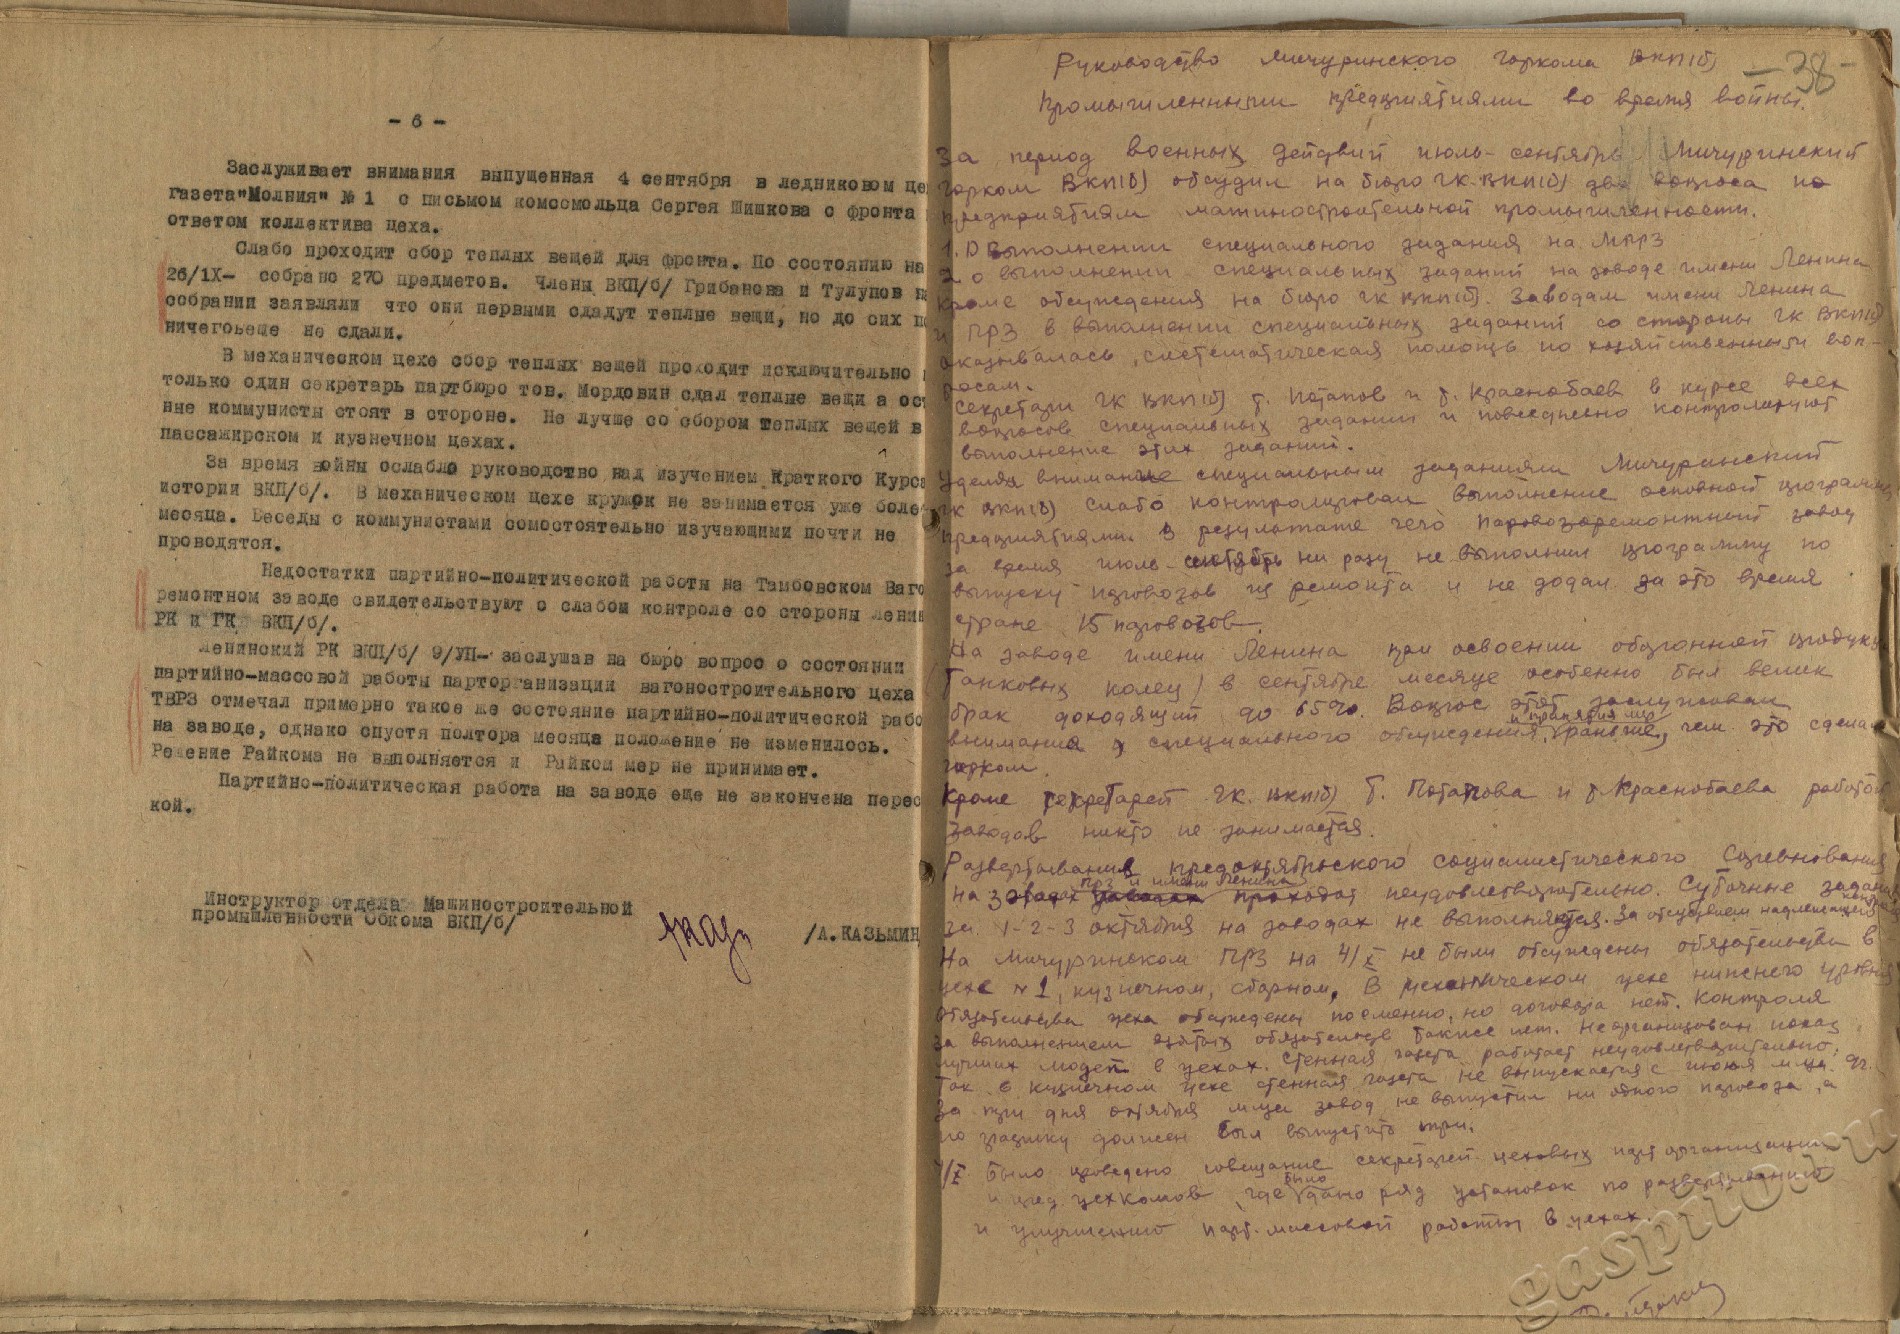 - 6 -
Заслуживает внимания выпущенная 4 сентября в ледниковом це
газета"Молния" № 1 с письмом комсомольца Сергея Шишкова с фронта
ответом коллектива цеха.
Слабо проходит сбор теплых вещей для фронта. По состоянию на
26/IX- собрано 270 предметов. Члены ВКП/б/ Грибанова и Тулупов н
собрании заявляли что они первыми сдадут теплые вещи, но до сих по
ничегоьеще не сдали.
В механическом цехе сбор теплых вещей проходит исключительно
только один секретарь партбюро тов. Мордовин сдал теплые вещи а ост
ные коммунисты стоят в стороне. Не лучше со сбором теплых вещей в
пассажирском и кузнечном цехах.
За время войны ослабло руководство над изучением Краткого Курса
истории ВКП/б/. В механическом цехе кружок не занимается уже боле
месяца. Беседы с коммунистами сомостоятельно изучающими почти не
проводятся.
Недостатки партийно-политической работы на Тамбовском Ваго
ремонтном заводе свидетельствуют о слабом контроле со стороны Ленин
РК и ГК ВКП/б/.
Ленинский РК ВКП/б/ 9/УП- заслушав на бюро вопрос о состоянии
партийно-массовой работы парторганизации вагоностроительного цеха
ТВРЗ отмечал примерно такое же состояние партийно-политической рабо
на заводе, однако спустя полтора месяца положение не изменилось.
Решение Райкома не выполняется и Райком мер не принимает.
Партийно-политическая работа на заводе еще не закончена перес
кой.
Инструктор отдела Машиностроительной
промышленности Обкома ВКП/б/
/А.КАЗЬМИН
-38-
Руководство Мичуринского горкома ВКП(б)
промышленными предприятиями во время войны.
За период военных действий июль-сентябрь Мичуринский
горком ВКП(б) обсудил на бюро ГК ВКП(б) два вопроса по
предприятиям машиностроительной промышленности.
1. О выполнении специального задания на МПРЗ
2 о выполнении специальных заданий на заводе имени Ленина
кроме обсуждения на бюро ГК ВКП(б). Заводам имени Ленина
и ПРЗ в выполнении специальных заданий со стороны ГК ВКП(б)
оказывалась систематическая помощь по хозяйственным воп-
росам.
Секретари ГК ВКП(б) т. Потапов и т. Краснобаев в курсе всех
вопросов специальных заданий и повседневно контролируют
выполнение этих заданий.
Уделяя внимание специальным заданиям Мичуринский
ГК ВКП(б) слабо контролировал выполнение основной программы
предприятиями. В результате чего паровозоремонтный завод
за время июль-сентябрь ни разу не выполнил программу по
выпуску паровозов из ремонта и не додал за это время
стране 15 паровозов.
На заводе имени Ленина при освоении оборонной продукц
/танковых колец/ в сентябре месяце особенно был велик
брак доходящий до 65%. Вопрос этот заслуживал
внимания и специального обсуждения и принятия мер раньше, чем это сделал
горком.
Кроме секретарей ГК. ВКП(б) т. Потапова и т. Краснобаева работой
заводов никто не занимается.
Развертывание предоктябрьского социалистического соревнования
на заводах ПРЗ и имени Ленина проходит неудовлетворительно. Суточные задания
за 1-2-3 октября на заводах не выполняются. За отсутствием надлежащего контроля
На Мичуринском ПРЗ на 4/X не были обсуждены обязательства в
цехе №1, кузнечном, сборном. В механическом цехе нижнего уровня
обязательства цеха обсуждены посменно, но договора нет. Контроля
за выполнением взятых обязательств также нет. Неорганизован показ
лучших людей в цехах. Стенная газета работает неудовлетворительно.
Так в кузнечном цехе стенная газета не выпускается с июня м-ца.
За три дня октября м-ца завод не выпустил ни одного паровоза, а
по графику должен был выпустить три.
4/X было проведено совещание секретарей цеховых парторганизаций
и пред. цехкомов где было дано ряд установок по развертыванию
и улучшений парт. массовой работы в цехах.
gaspito.ru